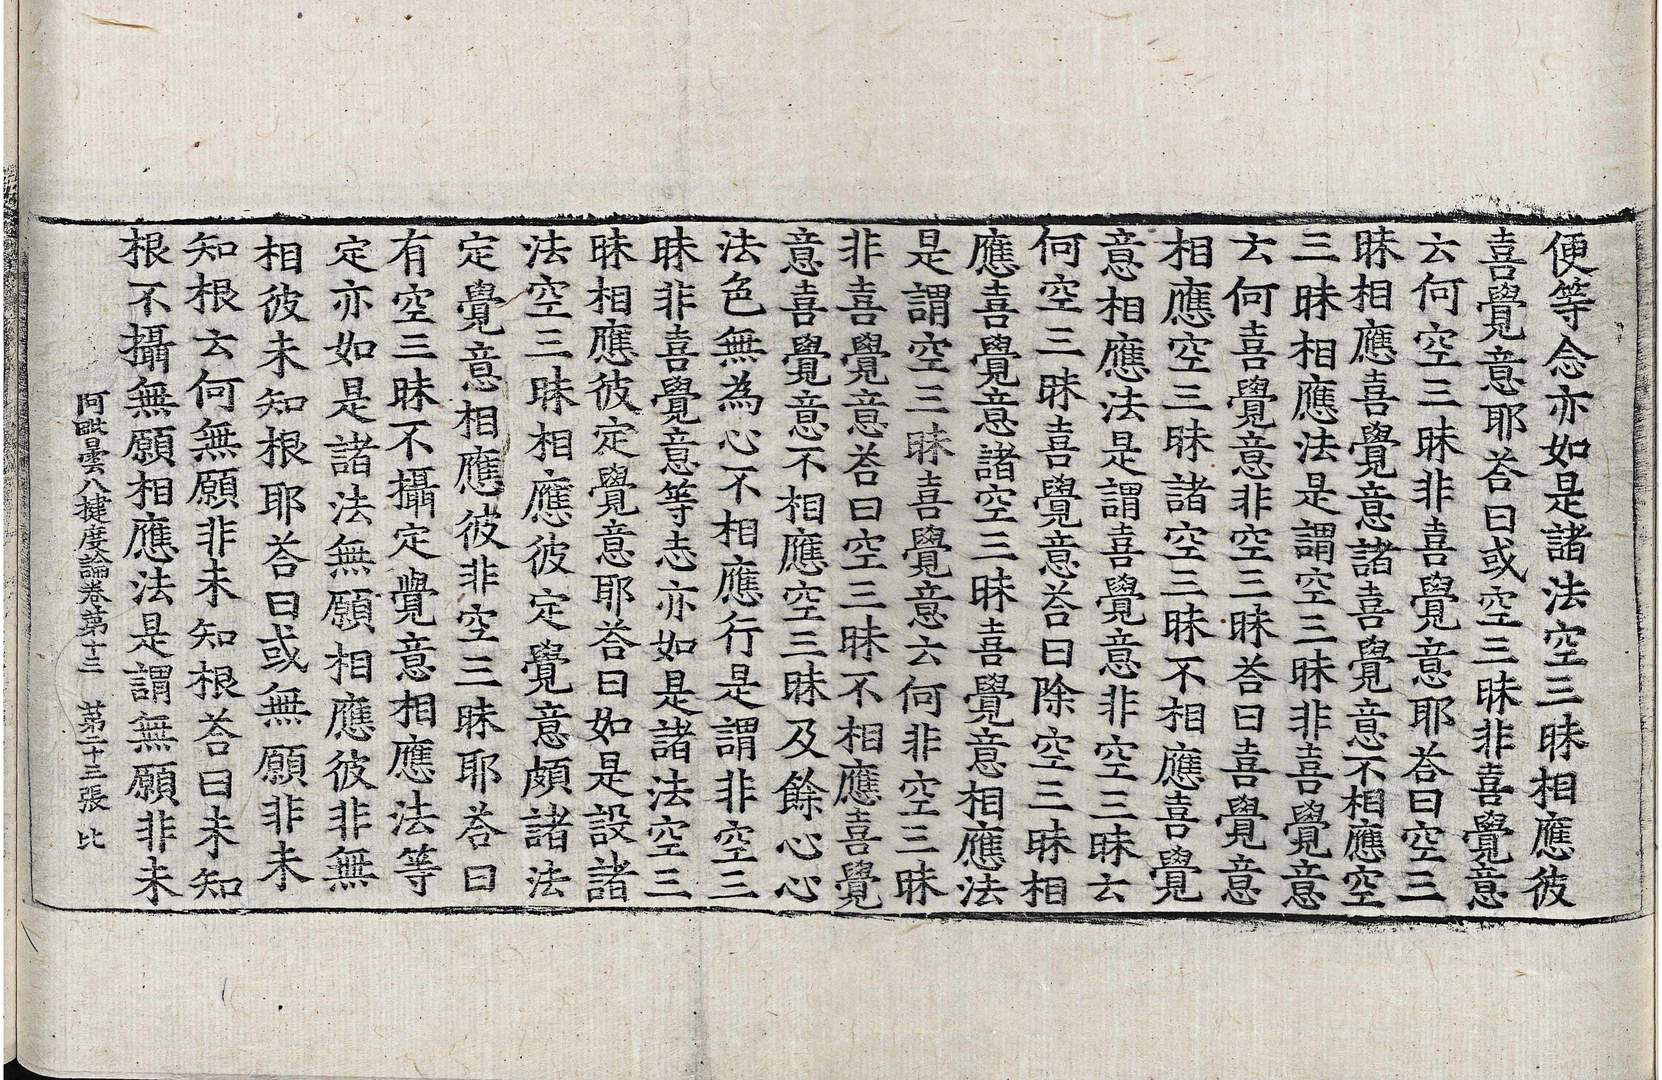 便等念亦如是諸法空三昧相應彼
喜覺意耶荅曰或空三昧非喜覺意
云何空三昧非喜覺意耶荅曰空三
昧相應喜覺意諸喜覺意不相應空
三昧相應法是謂空三昧非喜覺意
云何喜覺意非空三昧荅曰喜覺意
相應空三昧諸空三昧不相應喜覺
意相應法是謂喜覺意非空三昧云
何空三昧喜覺意荅曰除空三昧相
應喜覺意諸空三昧喜覺意相應法
是謂空三昧喜覺意云何非空三昧
非喜覺意荅曰空三昧不相應喜覺
意喜覺意不相應空三昧及餘心心
法色無為心不相應行是謂非空三
昧非喜覺意等志亦如是諸法空三
昧相應彼定覺意耶荅曰如是設諸
法空三昧相應彼定覺意頗諸法
定覺意相應彼非空三昧耶荅曰
有空三昧不攝定覺意相應法等
定亦如是諸法無願相應彼非無
相彼未知根耶荅曰或無願非未
知根云何無願非未知根荅曰未知
根不攝無願相應法是謂無願非未
阿毗曇八揵度論卷第十三 第二十三張 比